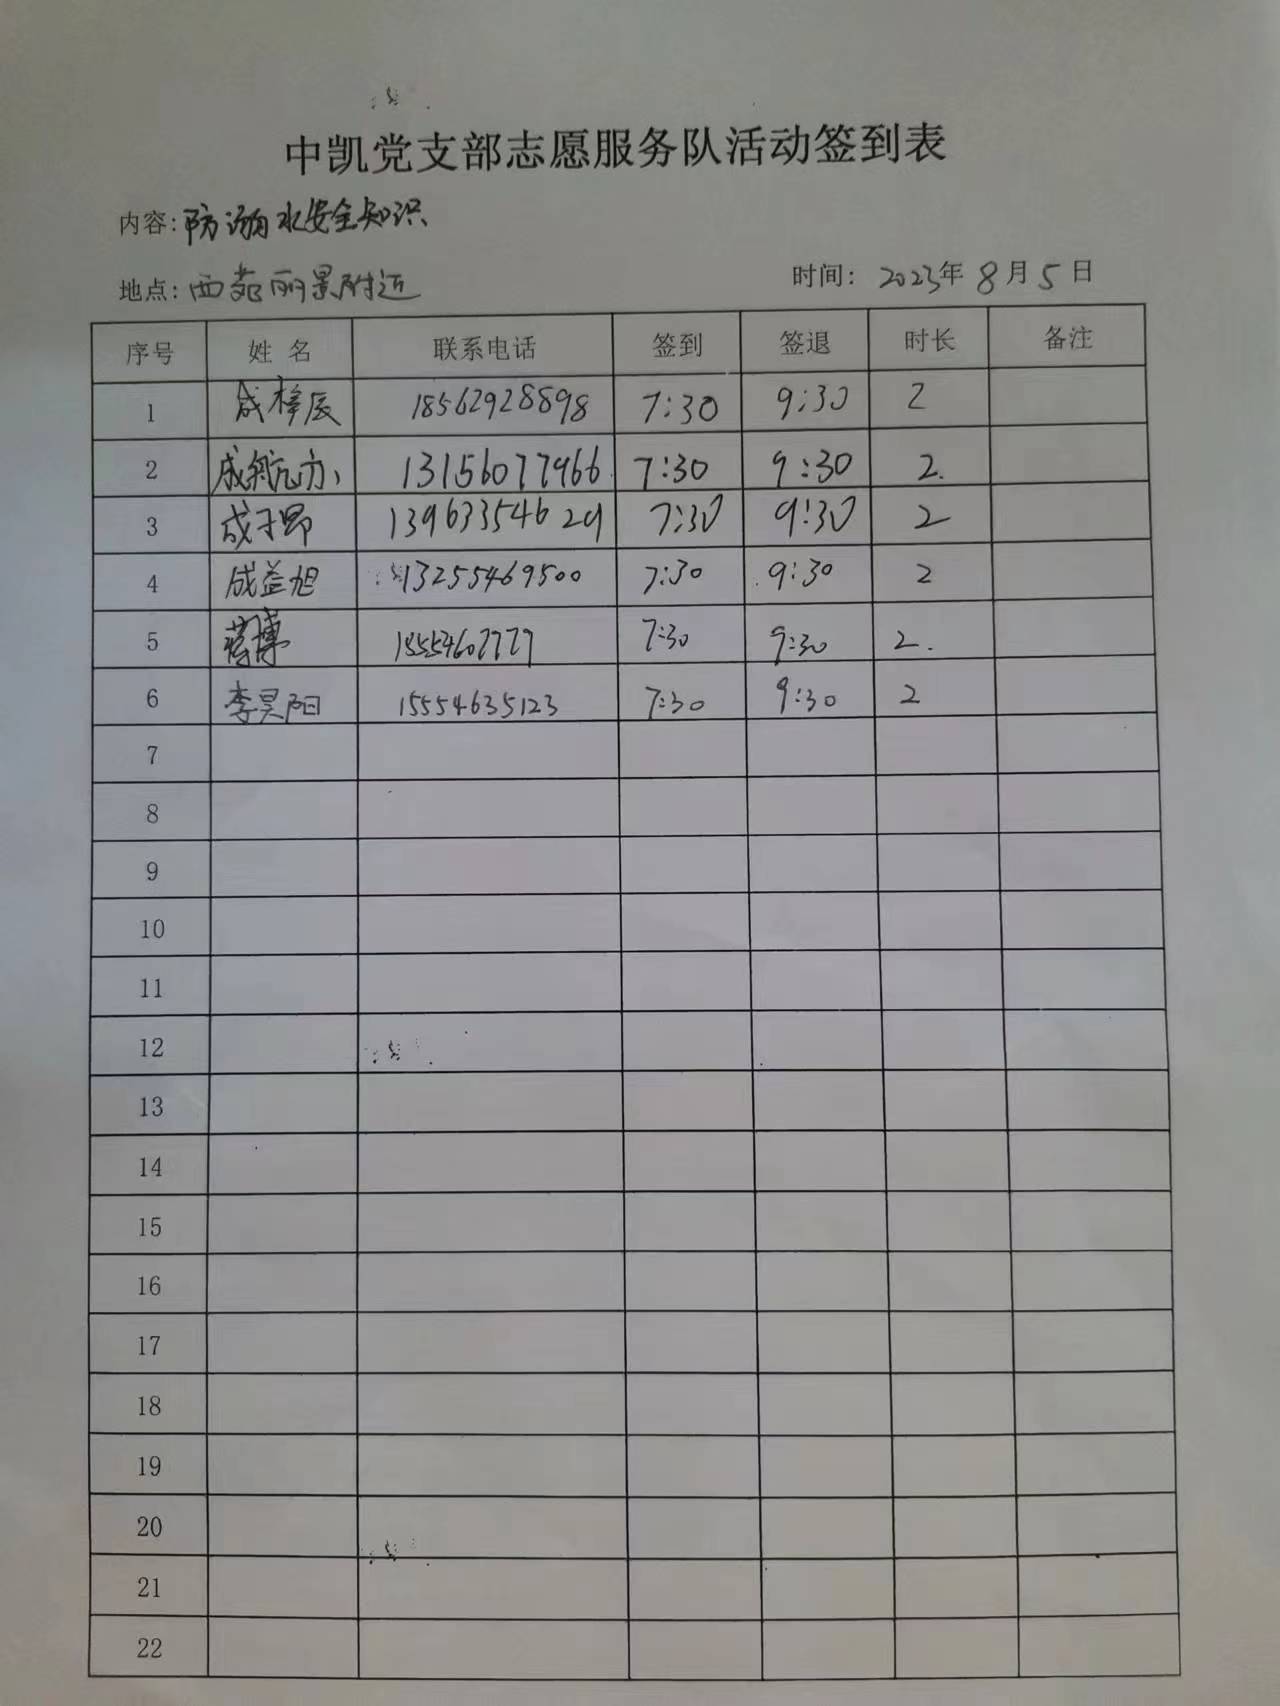 中凯党支部志愿服务队活动签到表
内容: 防溺水安全知识
地点: 西苑丽景附近 时间: 2023年 8月 5日
序号 姓 名 联系电话 签到 签退 时长 备注
1 成梓辰 18562928898 7:30 9:30 2
2 成 13156077966 7:30 9:30 2.
3 成子昂 13963354629 7:30 9:30 2
4 成益旭 13255469500 7:30 9:30 2
5 蒋博 18554607777 7:30 9:30 2.
6 李昊阳 15554635123 7:30 9:30 2
7
8
9
10
11
12
13
14
15
16
17
18
19
20
21
22